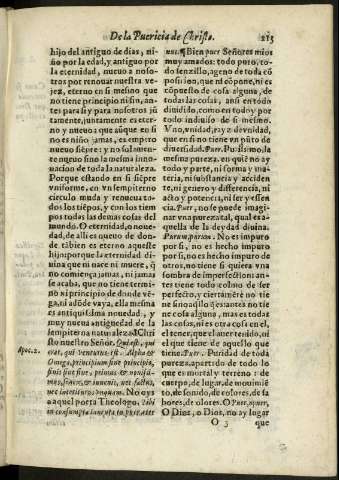 De la Puericia de Christo.
213
hijo del antiguo de dias, ni-
ño por la edad, y antiguo por
la eternidad, nueuo a noso-
tros por renouar nuestra ve-
jez, eterno en si mesmo que
no tiene principio ni fin, an-
tes para si y para nosotros jū
tamente, juntamente es eter-
no y nueuo a que aūque en si
no es niño jamas, es empero
siēpre: y no solamen-
te nueuo sino la mesma inno-
uacion de toda la naturaleza.
Porque estando en si siēpre
vniforme, en vn sempiterno
circulo muda y renueua to-
dos los tiēpos, y con los tiem
pos todas las demas cosas del
mundo. O eternidad, o noue-
dad, de alli es queuo de don-
de tābien es eterno aqueste
hijo: porque la eternidad di-
uina que ni nace ni muere, q̄
no comiença jamas, ni jamas
se acaba, que no tiene termi-
no ni principio de donde vē-
ga, ni adōde vaya, ella mesma
es antiquissima nouedad, y
muy nueua antiguedad de la
sempiterna naturaleza. IChri
sto nuestro Señor. Qui est, qui
Apoc. 2.
erat, qui venturus est. Alpha et
Omega, principium sine principio,
finis sine fine, primus & nouissi-
mus, senex, & iuuenis, nec factus,
nec interiturus vnquam. No oys
a aquel poeta Theologo. Tibi
inconsumpta iuuenta tu puer æter
nus. ¶ Bien puer Señores mios
muy amados: todo puro, to-
do senzillo, ageno de toda cō
posicion, que ni cōpone, ni es
cōpuesto de cosa alguna, de
todas las cosas, ansi en todo
diuidido, como en todo y por
todo indiuiso de si mesmo.
Vno, vnidad, rayz de vnidad,
que en si no tiene vn pūto de
diuersidad. Puer. Purissimo, la
mesma pureza, en quiē no ay
todo y parte, ni forma y ma-
teria, ni substancia y acciden
te, ni genero y differencia, ni
acto y potencia, ni ser y essen
cia. Puer, no se puede imagi-
nar vna pureza tal, qual es a-
quella de la deydad diuina.
Purum, purion. No es impuro
por si, no es hecho impuro
por si, no es hecho impuro de
otro, no tiene si quiera vna
sombra de imperfectiō: an-
tes tiene todo colmo de ser
perfecto, y ciertamēte no tie
ne sino q̄lo aquestando no tie
ne cosa alguna, mas las otras
cosas, ni es otra cosa en el, el
tener, que el auer tenido, ni el
que tiene de aquello que
tiene. Puer. Puridad de toda
pureza, apartado de todo lo
que es mortal y terreno: de
cuerpo, de lugar, de mouimiē
to, de sonido, de colores, de sa
bores, de olores. O Puer, o puer,
O Dios, o Dios, no ay lugar
O 3
que